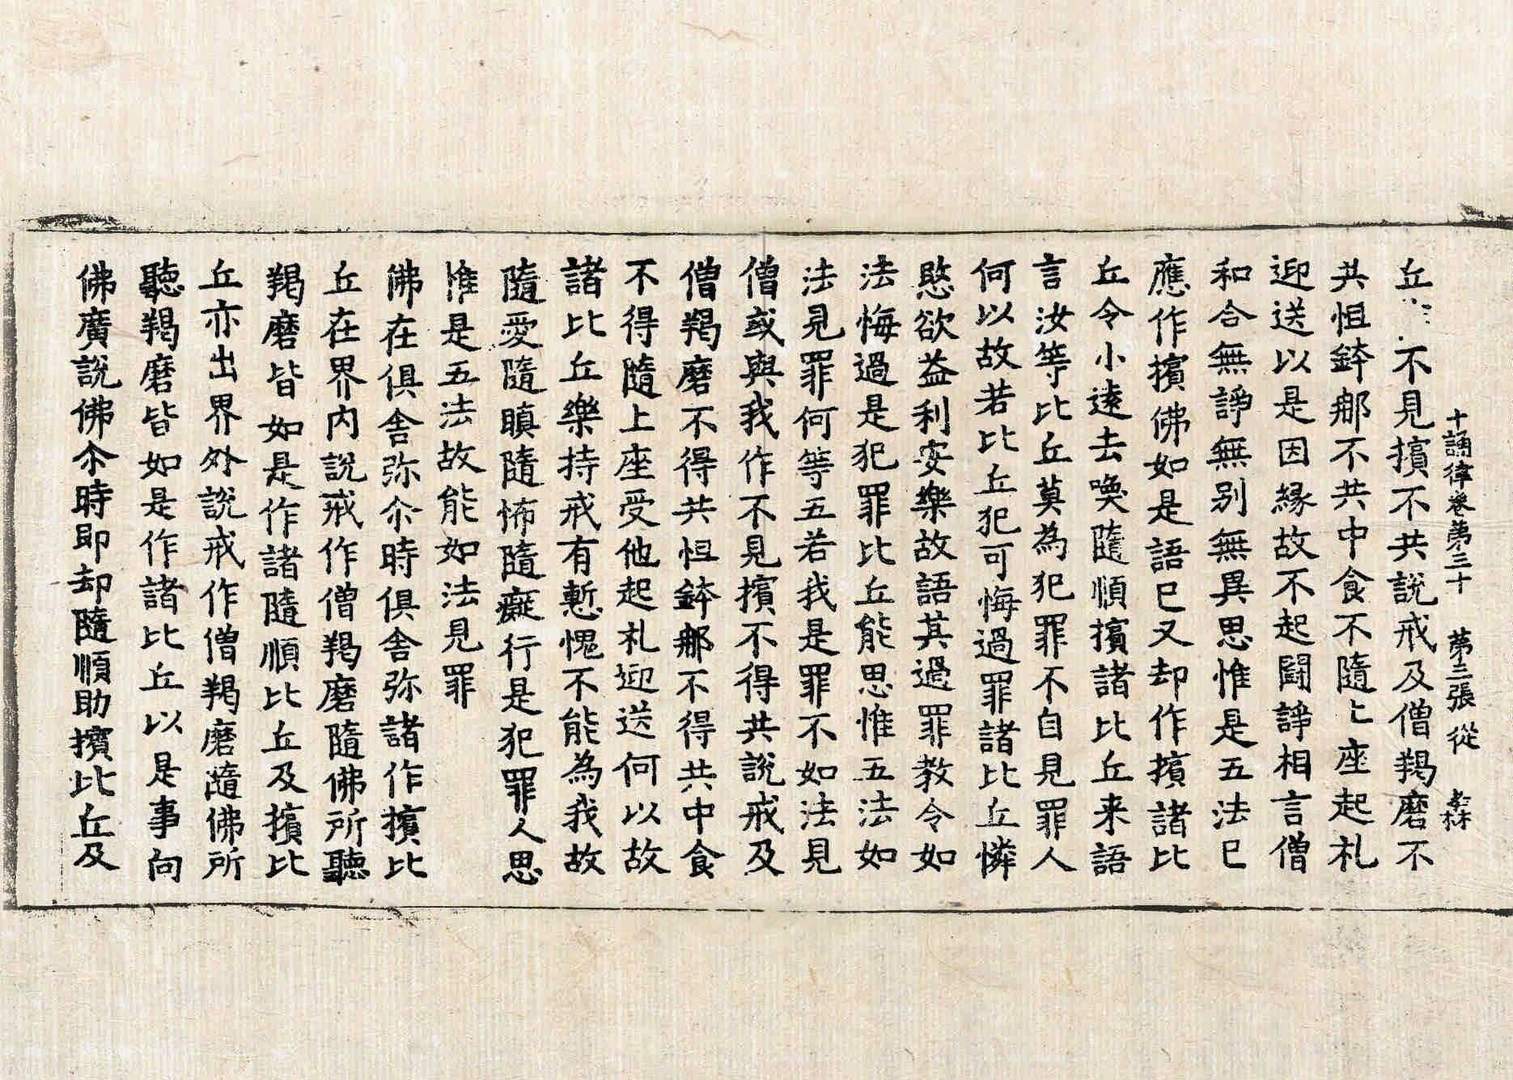 十誦律卷第三十　第三張　從
丘不見擯不共說戒及僧羯磨不
共恒鉢𨚗不共中食不隨上座起礼
迎送以是因緣故不起鬪諍相言僧
和合無諍無別無異思惟是五法已
應作擯佛如是語已又却作擯諸比
丘令小遠去喚隨順擯諸比丘来語
言汝等比丘莫為犯罪不自見罪人
何以故若比丘犯可悔過罪諸比丘憐
愍欲益利安樂故語其過罪教令如
法悔過是犯罪比丘能思惟五法如
法見罪何等五若我是罪不如法見
僧或與我作不見擯不得共說戒及
僧羯磨不得共恒鉢𨚗不得共中食
不得隨上座受他起礼迎送何以故
諸比丘樂持戒有慙愧不能為我故
隨愛隨瞋隨怖隨癡行是犯罪人思
惟是五法故能如法見罪
佛在俱舍弥尒時俱舍弥諸作擯比
丘在界內說戒作僧羯磨隨佛所聽
羯磨皆如是作諸隨順比丘及擯比
丘亦出界外說戒作僧羯磨隨佛所
聽羯磨皆如是作諸比丘以是事向
佛廣說佛尒時即却隨順助擯比丘及